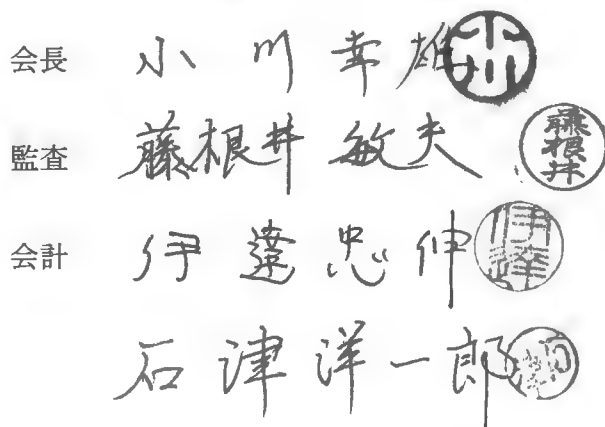 会長 小川幸雄 小川
監査 藤根井敏夫 藤根井
会計 伊達忠伸 伊達
石津洋一郎